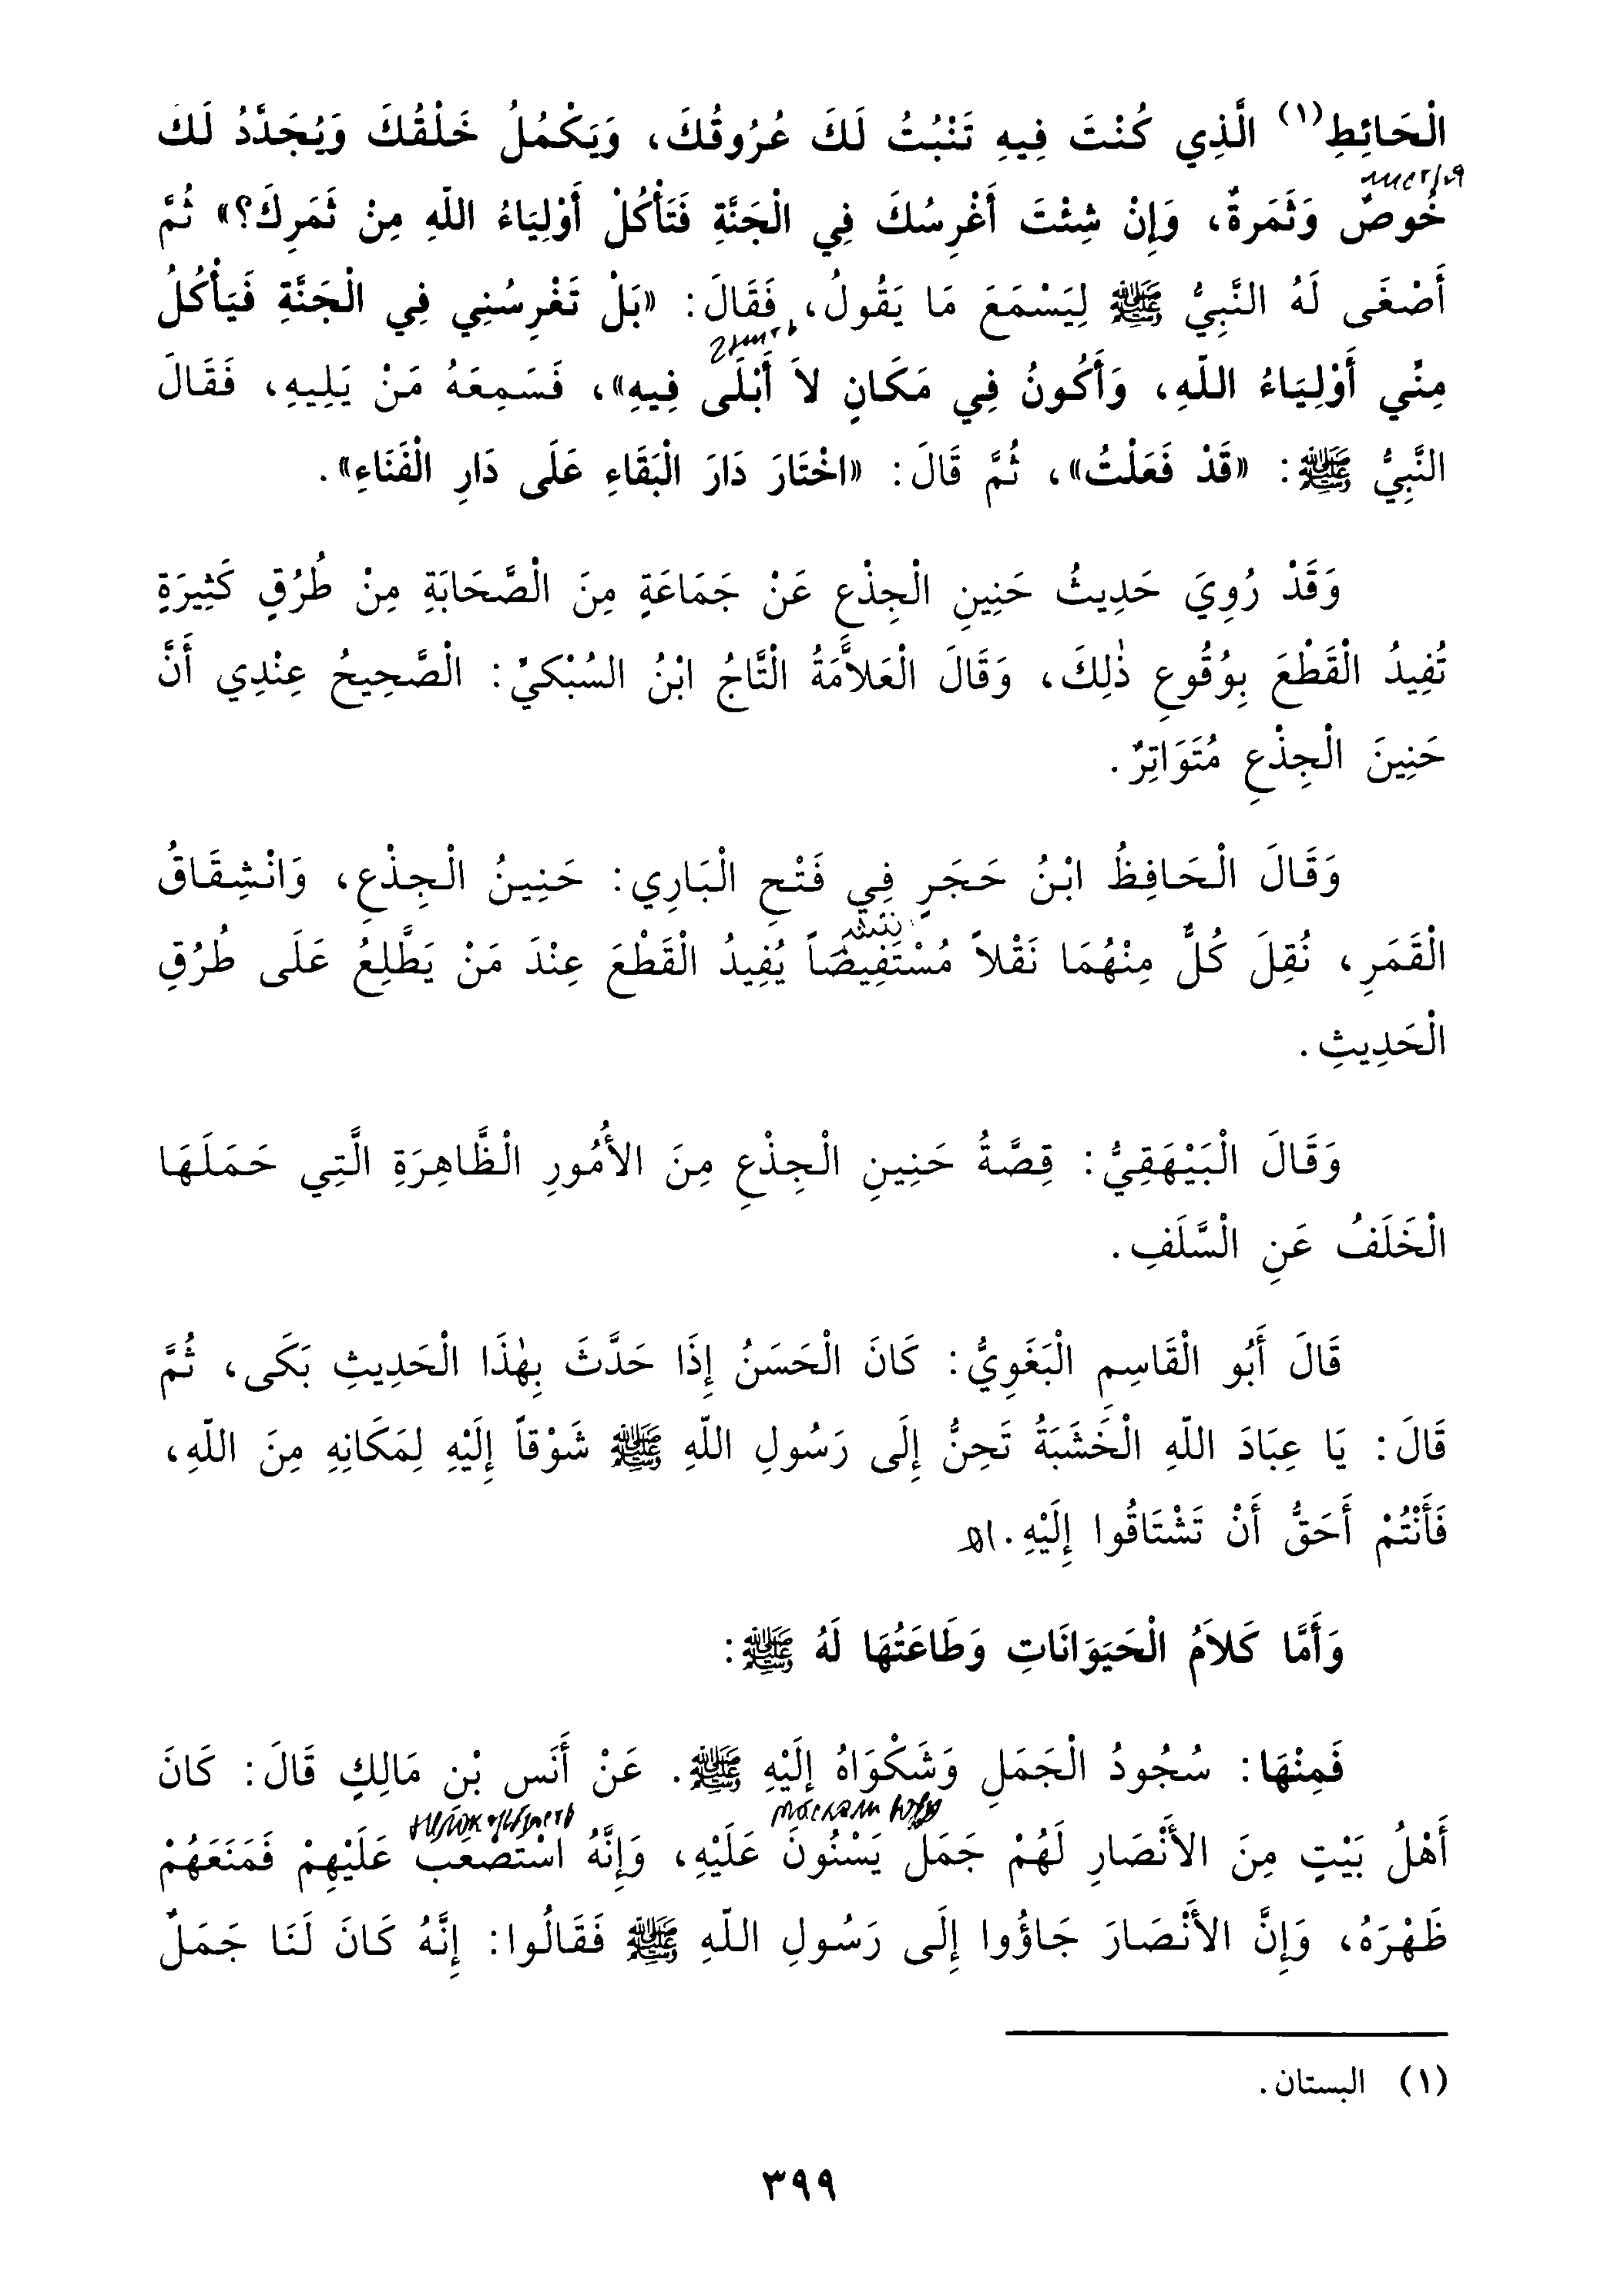 الْحَائِطِ(١) الَّذِي كُنْتَ فِيهِ تَنْبُتُ لَكَ عُرُوقُكَ، وَيَكْمُلُ خَلْقُكَ وَيُجَدَّدُ لَكَ
خُوصٌ وَثَمَرةٌ، وَإِنْ شِئْتَ أَغْرِسُكَ فِي الْجَنَّةِ فَتَأْكُلْ أَوْلِيَاءُ اللّهِ مِنْ ثَمَرِكَ؟» ثُمَّ
أَصْغَى لَهُ النَّبِيُّ ﷺ لِيَسْمَعَ مَا يَقُولُ، فَقَالَ: «بَلْ تَغْرِسُنِي فِي الْجَنَّةِ فَيَأْكُلُ
مِنِّي أَوْلِيَاءُ اللّهِ، وَأَكُونُ فِي مَكَانٍ لاَ أَبْلَى فِيهِ»، فَسَمِعَهُ مَنْ يَلِيهِ، فَقَالَ
النَّبِيُّ ﷺ: «قَدْ فَعَلْتُ»، ثُمَّ قَالَ: «اخْتَارَ دَارَ الْبَقَاءِ عَلَى دَارِ الْفَنَاءِ».
وَقَدْ رُوِيَ حَدِيثُ حَنِينِ الْجِذْعِ عَنْ جَمَاعَةٍ مِنَ الْصَّحَابَةِ مِنْ طُرُقٍ كَثِيرَةٍ
تُفِيدُ الْقَطْعَ بِوُقُوعِ ذٰلِكَ، وَقَالَ الْعَلاَّمَةُ الْتَّاجُ ابْنُ السُبْكيِّ: الْصَّحِيحُ عِنْدِي أَنَّ
حَنِينَ الْجِذْعِ مُتَوَاتِرٌ.
وَقَالَ الْحَافِظُ ابْنُ حَجَرٍ فِي فَتْحِ الْبَارِي: حَنِينُ الْجِذْعِ، وَانْشِقَاقُ
الْقَمَرِ، نُقِلَ كُلٌّ مِنْهُمَا نَقْلاً مُسْتَفِيضاً يُفِيدُ الْقَطْعَ عِنْدَ مَنْ يَطَّلِعُ عَلَى طُرُقِ
الْحَدِيثِ.
وَقَالَ الْبَيْهَقِيُّ: قِصَّةُ حَنِينِ الْجِذْعِ مِنَ الأُمُورِ الْظَّاهِرَةِ الَّتِي حَمَلَهَا
الْخَلَفُ عَنِ الْسَّلَفِ.
قَالَ أَبُو الْقَاسِمِ الْبَغَوِيُّ: كَانَ الْحَسَنُ إِذَا حَدَّثَ بِهٰذَا الْحَدِيثِ بَكَى، ثُمَّ
قَالَ: يَا عِبَادَ اللّهِ الْخَشَبَةُ تَحِنُّ إِلَى رَسُولِ اللّهِ ﷺ شَوْقاً إِلَيْهِ لِمَكَانِهِ مِنَ اللّهِ،
فَأَنْتُمْ أَحَقُّ أَنْ تَشْتَاقُوا إِلَيْهِ. اهـ
وَأَمَّا كَلاَمُ الْحَيَوَانَاتِ وَطَاعَتُهَا لَهُ ﷺ:
فَمِنْهَا: سُجُودُ الْجَمَلِ وَشَكْوَاهُ إِلَيْهِ ﷺ. عَنْ أَنَسِ بْنِ مَالِكٍ قَالَ: كَانَ
أَهْلُ بَيْتٍ مِنَ الأَنْصَارِ لَهُمْ جَمَلٌ يَسْنُونَ عَلَيْهِ، وَإِنَّهُ اسْتَصْعَبَ عَلَيْهِمْ فَمَنَعَهُمْ
ظَهْرَهُ، وَإِنَّ الأَنْصَارَ جَاؤُوا إِلَى رَسُولِ اللّهِ ﷺ فَقَالُوا: إِنَّهُ كَانَ لَنَا جَمَلٌ
(١) البستان.
٣٩٩